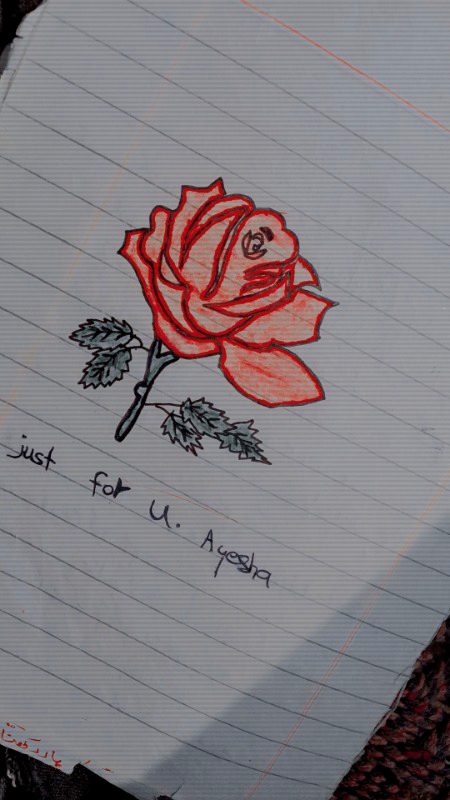 just for U. Ayesha